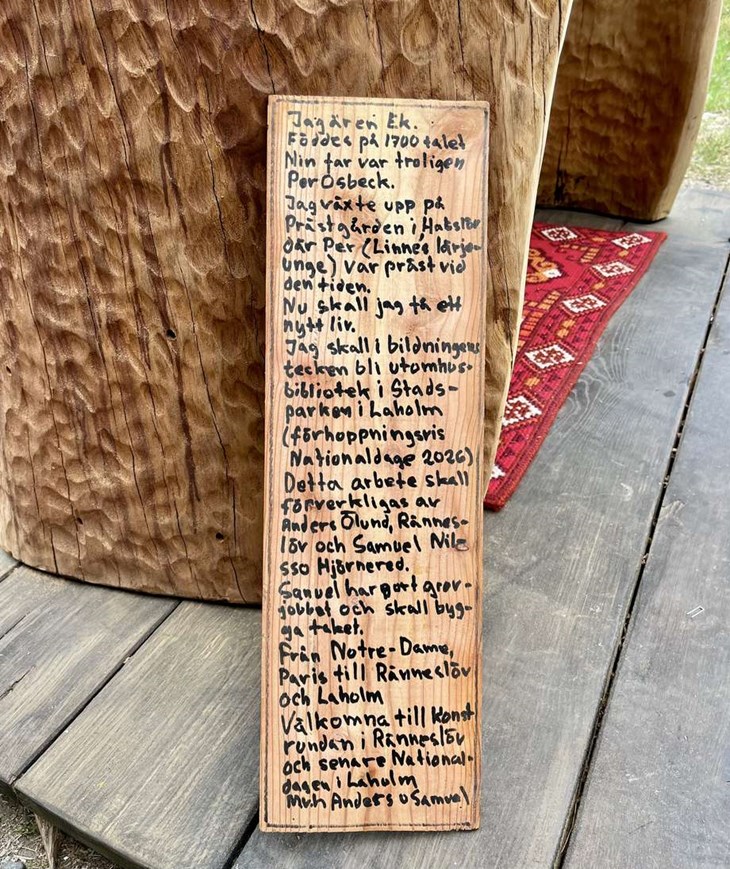 Jag är en Ek.
Föddes på 1700 talet
Min far var troligen
Per Osbeck.
Jag växte upp på
Prästgården i Hasslöv
där Per (Linnés lärje-
unge) var präst vid
den tiden.
Nu skall jag få ett
nytt liv.
Jag skall i bildningens
tecken bli utomhus-
bibliotek i Stads-
parken i Laholm
(förhoppningsvis
Nationaldage 2026)
Detta arbete skall
förverkligas av
Anders Ölund, Rännes-
löv och Samuel Nil-
sso Hjörnered.
Samuel har gort grov-
jobbat och skall byg-
ga taket.
Från Notre-Dame,
Paris till Ränneslöv
och Laholm
Välkomna till Konst
rundan i Ränneslöv
och senare National-
dagen i Laholm
Mvh Anders o Samuel